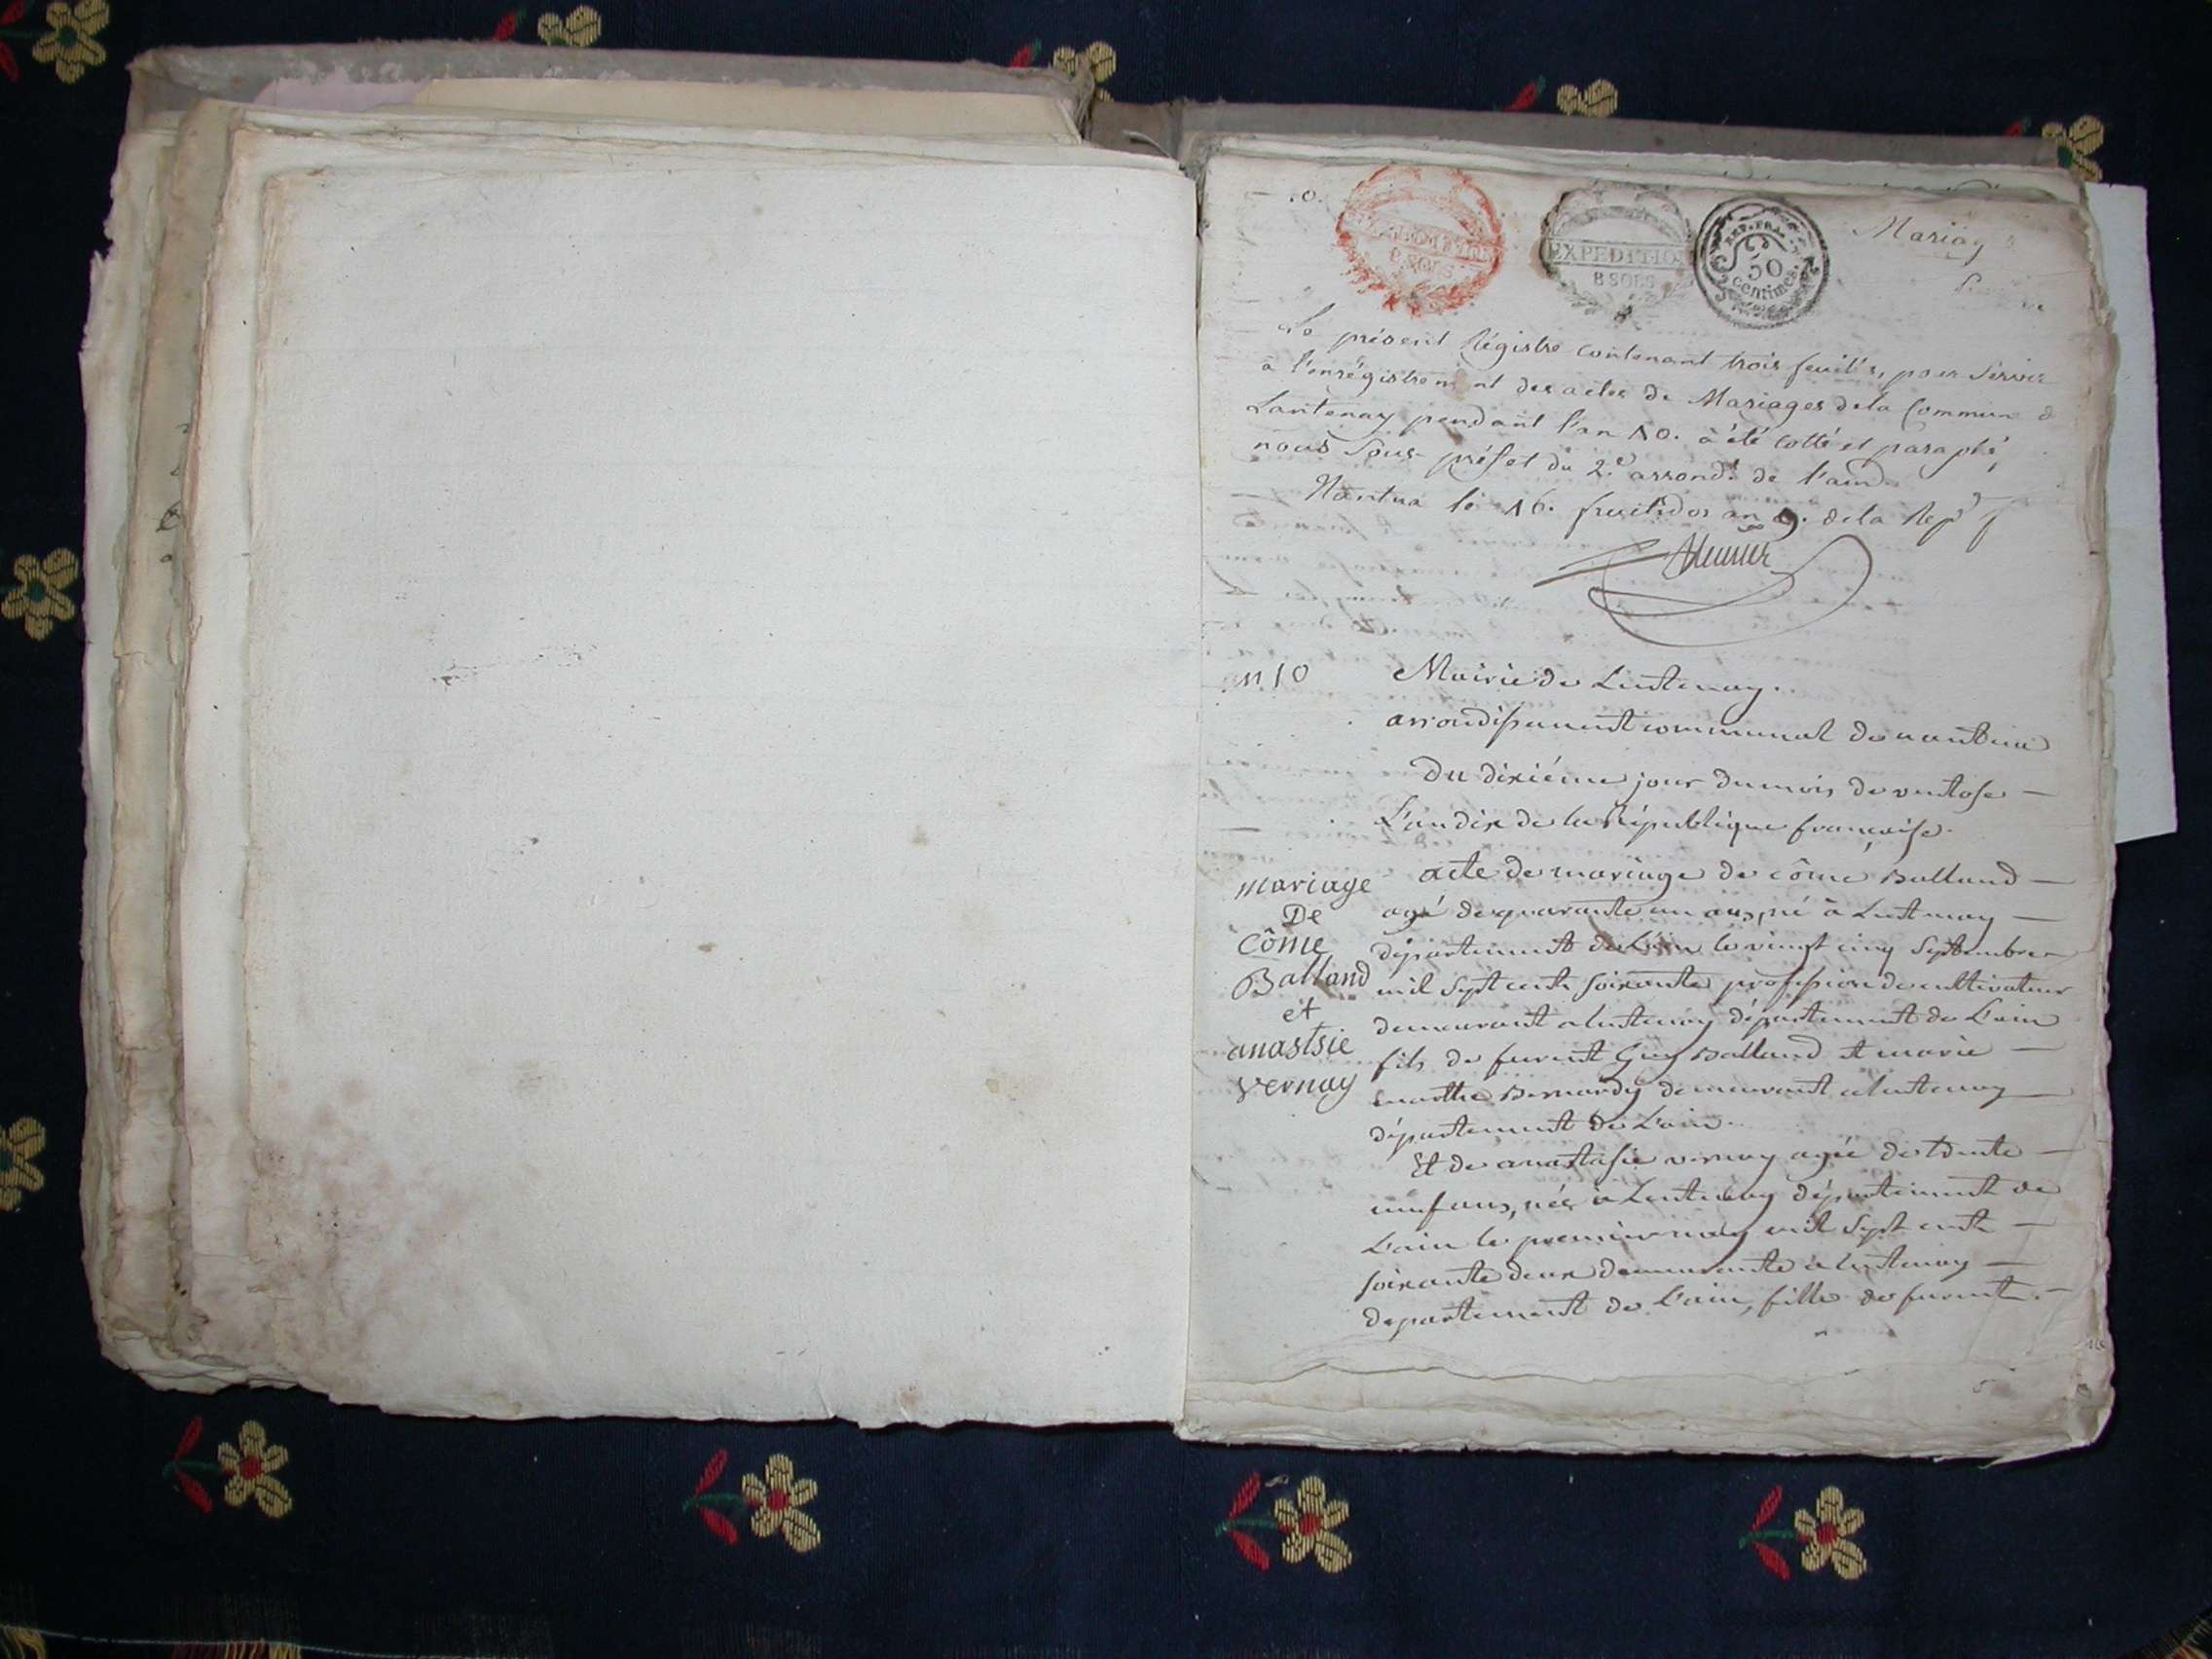 EXPEDITION
8 SOLS
EXPEDITIO
8 SOLS
REP. FRA.
50
centimes
Mariag
Le présent Régistre contenant trois feuill's, pour Servir
à l'enrégistrem nt des actes de Mariages de la Commune d
Lantenay pendant l'an 10. à été cotté et paraphé,
nous Sous-préfet du 2.e arrond.t de l'ain
Nantua le 16. fructidor an 9. de la Rep
n 10
Mairie de Lentenay.
arrondissement communal de nantua
Du dixiéme jour du mois de ventose
L'an dix de la République françaife.
mariage
De
Côme
Balland
et
anastsie
vernay
acte de mariage de côme Balland
agé de quarante un ans, né à Lentenay
département de L'ain le vingt cinq Septembre
mil Sept cents soixante profession de cultivateur
demeurant a lentenay département de L'ain
fils de furent Guy Balland et marie
marthe Bernardy demeurant a lentenay
département de L'ain.
Et de anastasie vernay agée de trente
neuf ans, née à Lentenay département de
L'ain le premier may mil Sept cents
soixante deux demeurante a lentenay
departement de L'ain, fille de furent